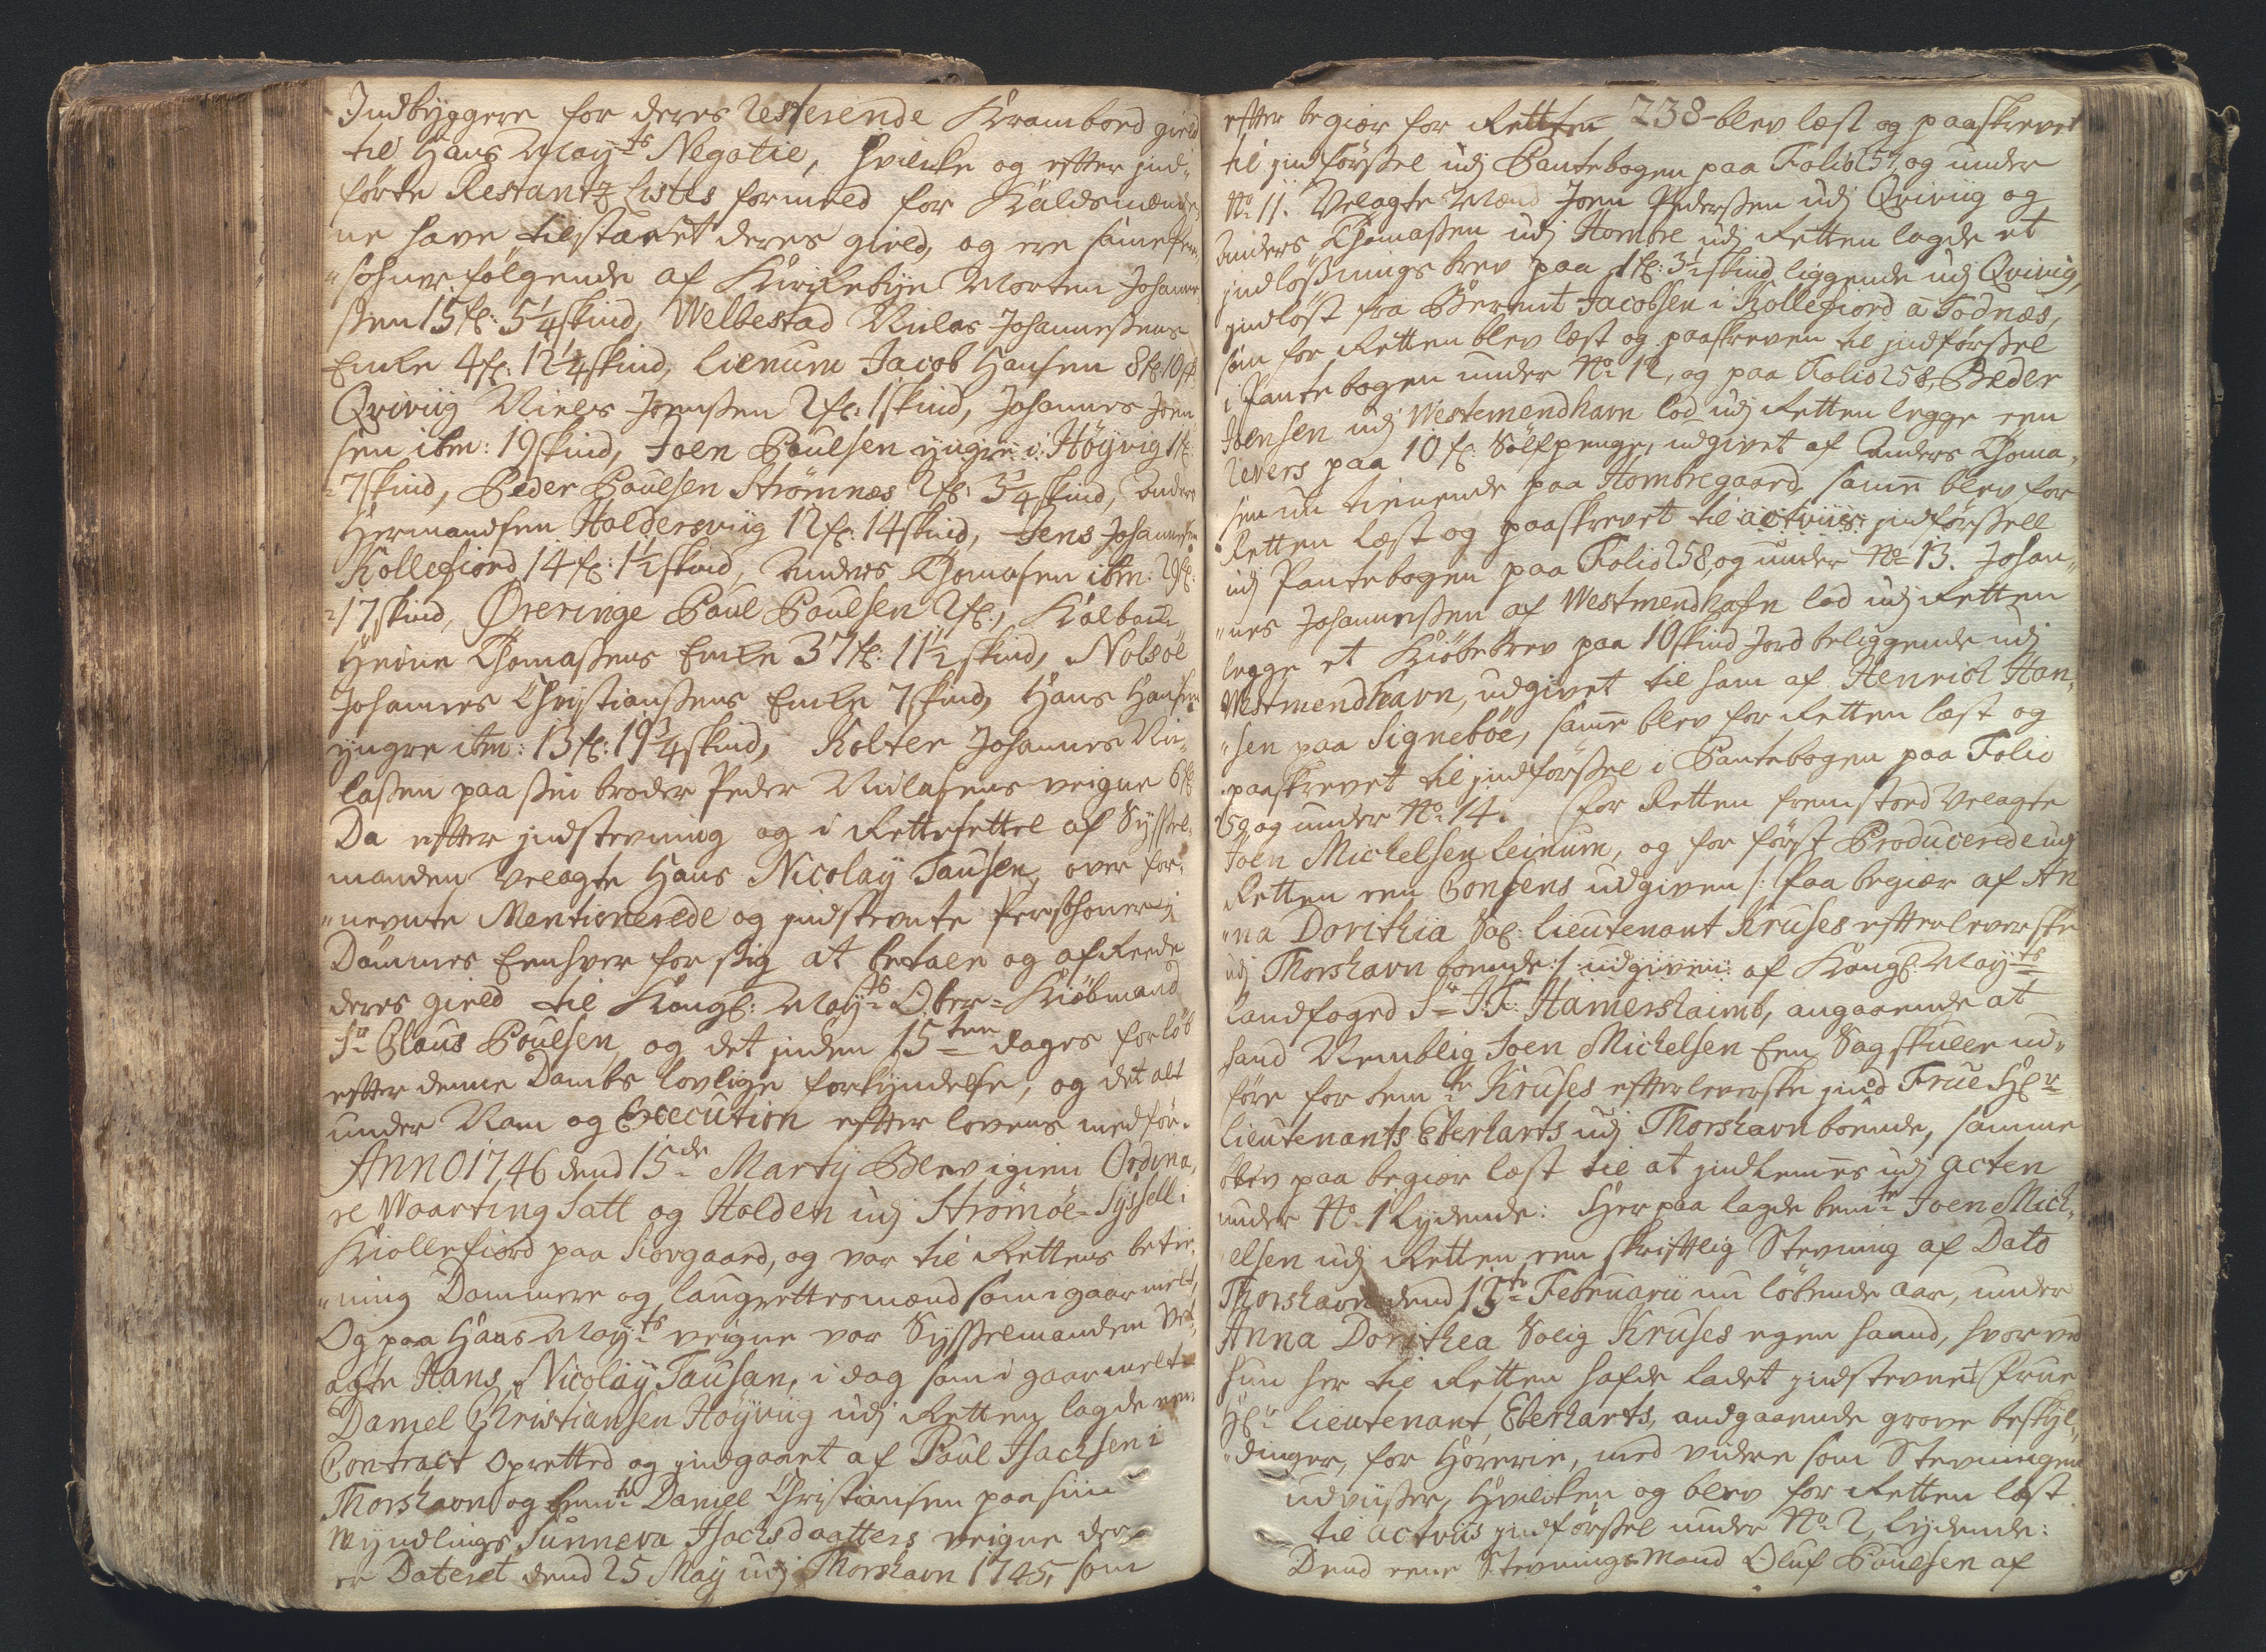 Indbyggere for deres resterende Krambord gield
til Hans Mayts Negotie, hvilcke og efter ind„
førte Restantz Listes formeld for Kaldsmænde„
ne have tilstaaet deres gield, og ere samme Per„
„sohner følgende af Kirkebye Morten Johannes„
sen 15 fl: 5¼ skind, Welbestad Niclas Johannesens
Encke 4 fl: 12¼ skind, Lienum Jacob Hansen 8 fl: 10 sk:
Qviviig Niels Joensen 2 fl: 1 skind, Johannes Joen
sen ibm: 19 skind, Joen Poulsen yngre i Höyvig 1 fl:
7 skind, Peder Poulsen Strömnæs 2 fl: 3¼ skind, Anders
Hermandsen Haldersviig 12 fl: 14 skind, Jens Johannesen
Kollefiord 14 fl: 1½ skind, Anders Thomasen ibm: 29 fl:
17 skind, Øreringe Poul Poulsen 2 fl:, Kalbach
Heine Thomasens Encke 37 fl: 11½ skind, Nolsöe
Johannes Christiansens Encke 7 skind, Hans Hansen
yngre ibm: 13 fl: 19¾ skind, Kolter Johannes Nic„
lasen paa sin broder Peder Niclasens veigne 6 fl:
Da efter indstevning og i Rettesettel af Syssel„
manden Velagte Hans Nicolay Tausen, over for„
„nevnte Mentionerede og indstevnte Persohner
Dømmes Eenhver for sig at betale og afreede
deres gield til Kongl: Mayts Ober-Kiöbmand
Sr Claus Poulsen, og det inden 15ten dages forløb
efter denne Dombs Lovlige forkyndelse, og det alt
under Nam og Execution efter lovens medför.
ANNO 1746 dend 15de Martij Blev igien Ordina„
re Waarting Satt og Holden udj Strømöe-Syssell i
Kiollefiord paa Siovgaard, og var til Rettens betie„
„ning Dommere og Laugrettesmænd som i gaar melt,
Og paa Hans Mayts veigne var Sysselmanden Vel„
agte Hans Nicolay Tausan, i dag som i gaar melt.
Daniel Christiansen Höyviig udj Retten lagde een
Contract Oprettet og indgaaet af Poul Isachsen i
Thorshavn og bemte Daniel Christiansen paa sin
Myndlings Sunneva Isachsdaatters veigne der
er Dateret dend 25 May udj Thorshavn 1745, som
238
efter begiær for Retten blev læst og paaskrevet
til indførsel udj Pantebogen paa Folio 257 og under
No 11. Velagte Mænd Joen Pedersen udj Qviviig og
Anders Thomasen udj Hombre udj Retten lagde et
indlösnings brev paa 1 fl: 3½ skind liggende udj Qviviig,
indlöst fra Berent Jacobsen i Kollefiord a Todnæs,
som for Retten blev læst og paaskreven til indførsel
i Pantebogen under No 12, og paa Folio 258, Peder
Joensen udj Westemendhavn lod udj Retten legge een
revers paa 10 fl: Sölfpenge, udgivet af Anders Thoma„
sen nu tienende paa Hombregaard, samme blev for
Retten læst og paaskrevet til indførsell
udj Pantebogen paa Folio 258, og under No 13. Johan„
„nes Johannesen af Westmendhafn lod udj Retten
legge et Kiöbebrev paa 10 skind Jord beliggende udj
Westmendhavn, udgivet til ham af Henrich Han„
„sen paa Signeböe, samme blev for Retten læst og
paaskrevet til indførsel i Pantebogen paa Folio
259 og under No 14. For Retten fremstoed Velagte
Joen Michelsen Leinum, og for först Producerede udj
Retten een Consens udgiven /: Paa begiær af An
„na Dorithia Sal: Lieutenant Kruses efterleverske
udj Thorshavn boende :/ udgiven af Kongl: Mayts
Landfoged Sr J: F: Hamershaimb, angaaende at
hand Nemblig Joen Michelsen Een Sag skulle ud„
føre for bemte Kruses efterleverske imod Frue Hr
Lieutenants Eberharts udj Thorshavn boende, samme
blev paa begiær læst til at indlemes udj acten
under No 1 Lydende: Her paa lagde bemte Joen Mich„
elsen udj Retten een skriftlig Stevning af Dato
Thorshavn dend 15te Februarii nu løbende aar, under
Anna Dorithea Salig Kruses egen haand, hvor ved
hun her til Retten hafde ladet indstevnet Frue
Hr Lieutenant Eberharts, andgaaende grove beskyl„
„dinger, for Horerie, med videre som Stevningen
udviiser, Hvilcken og blev for Retten læst
til actviis indførsel under No 2, Lydende:
Dend eene Stevnings Mand Oluf Poulsen af